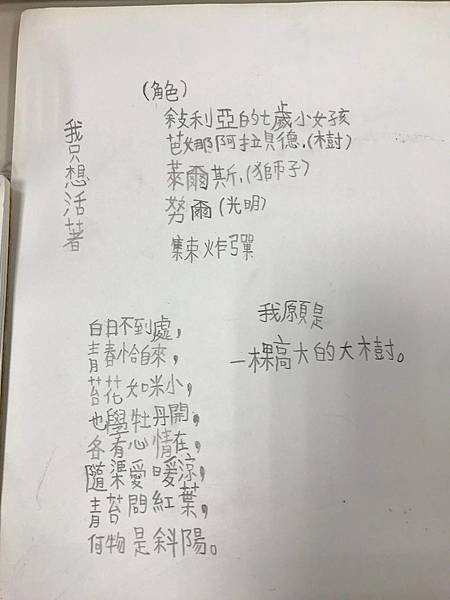 我只想活著
(角色)
敍利亞的七歲小女孩
芭娜阿拉貝德.(樹)
萊爾斯.(獅子)
努爾(光明)
集束炸彈
白日不到處，
青春恰自來，
苔花如米小，
也學牡丹開，
各有心情在，
隨渠愛暖涼，
青苔問紅葉，
何物是斜陽。
我願是
一棵高大的大樹。